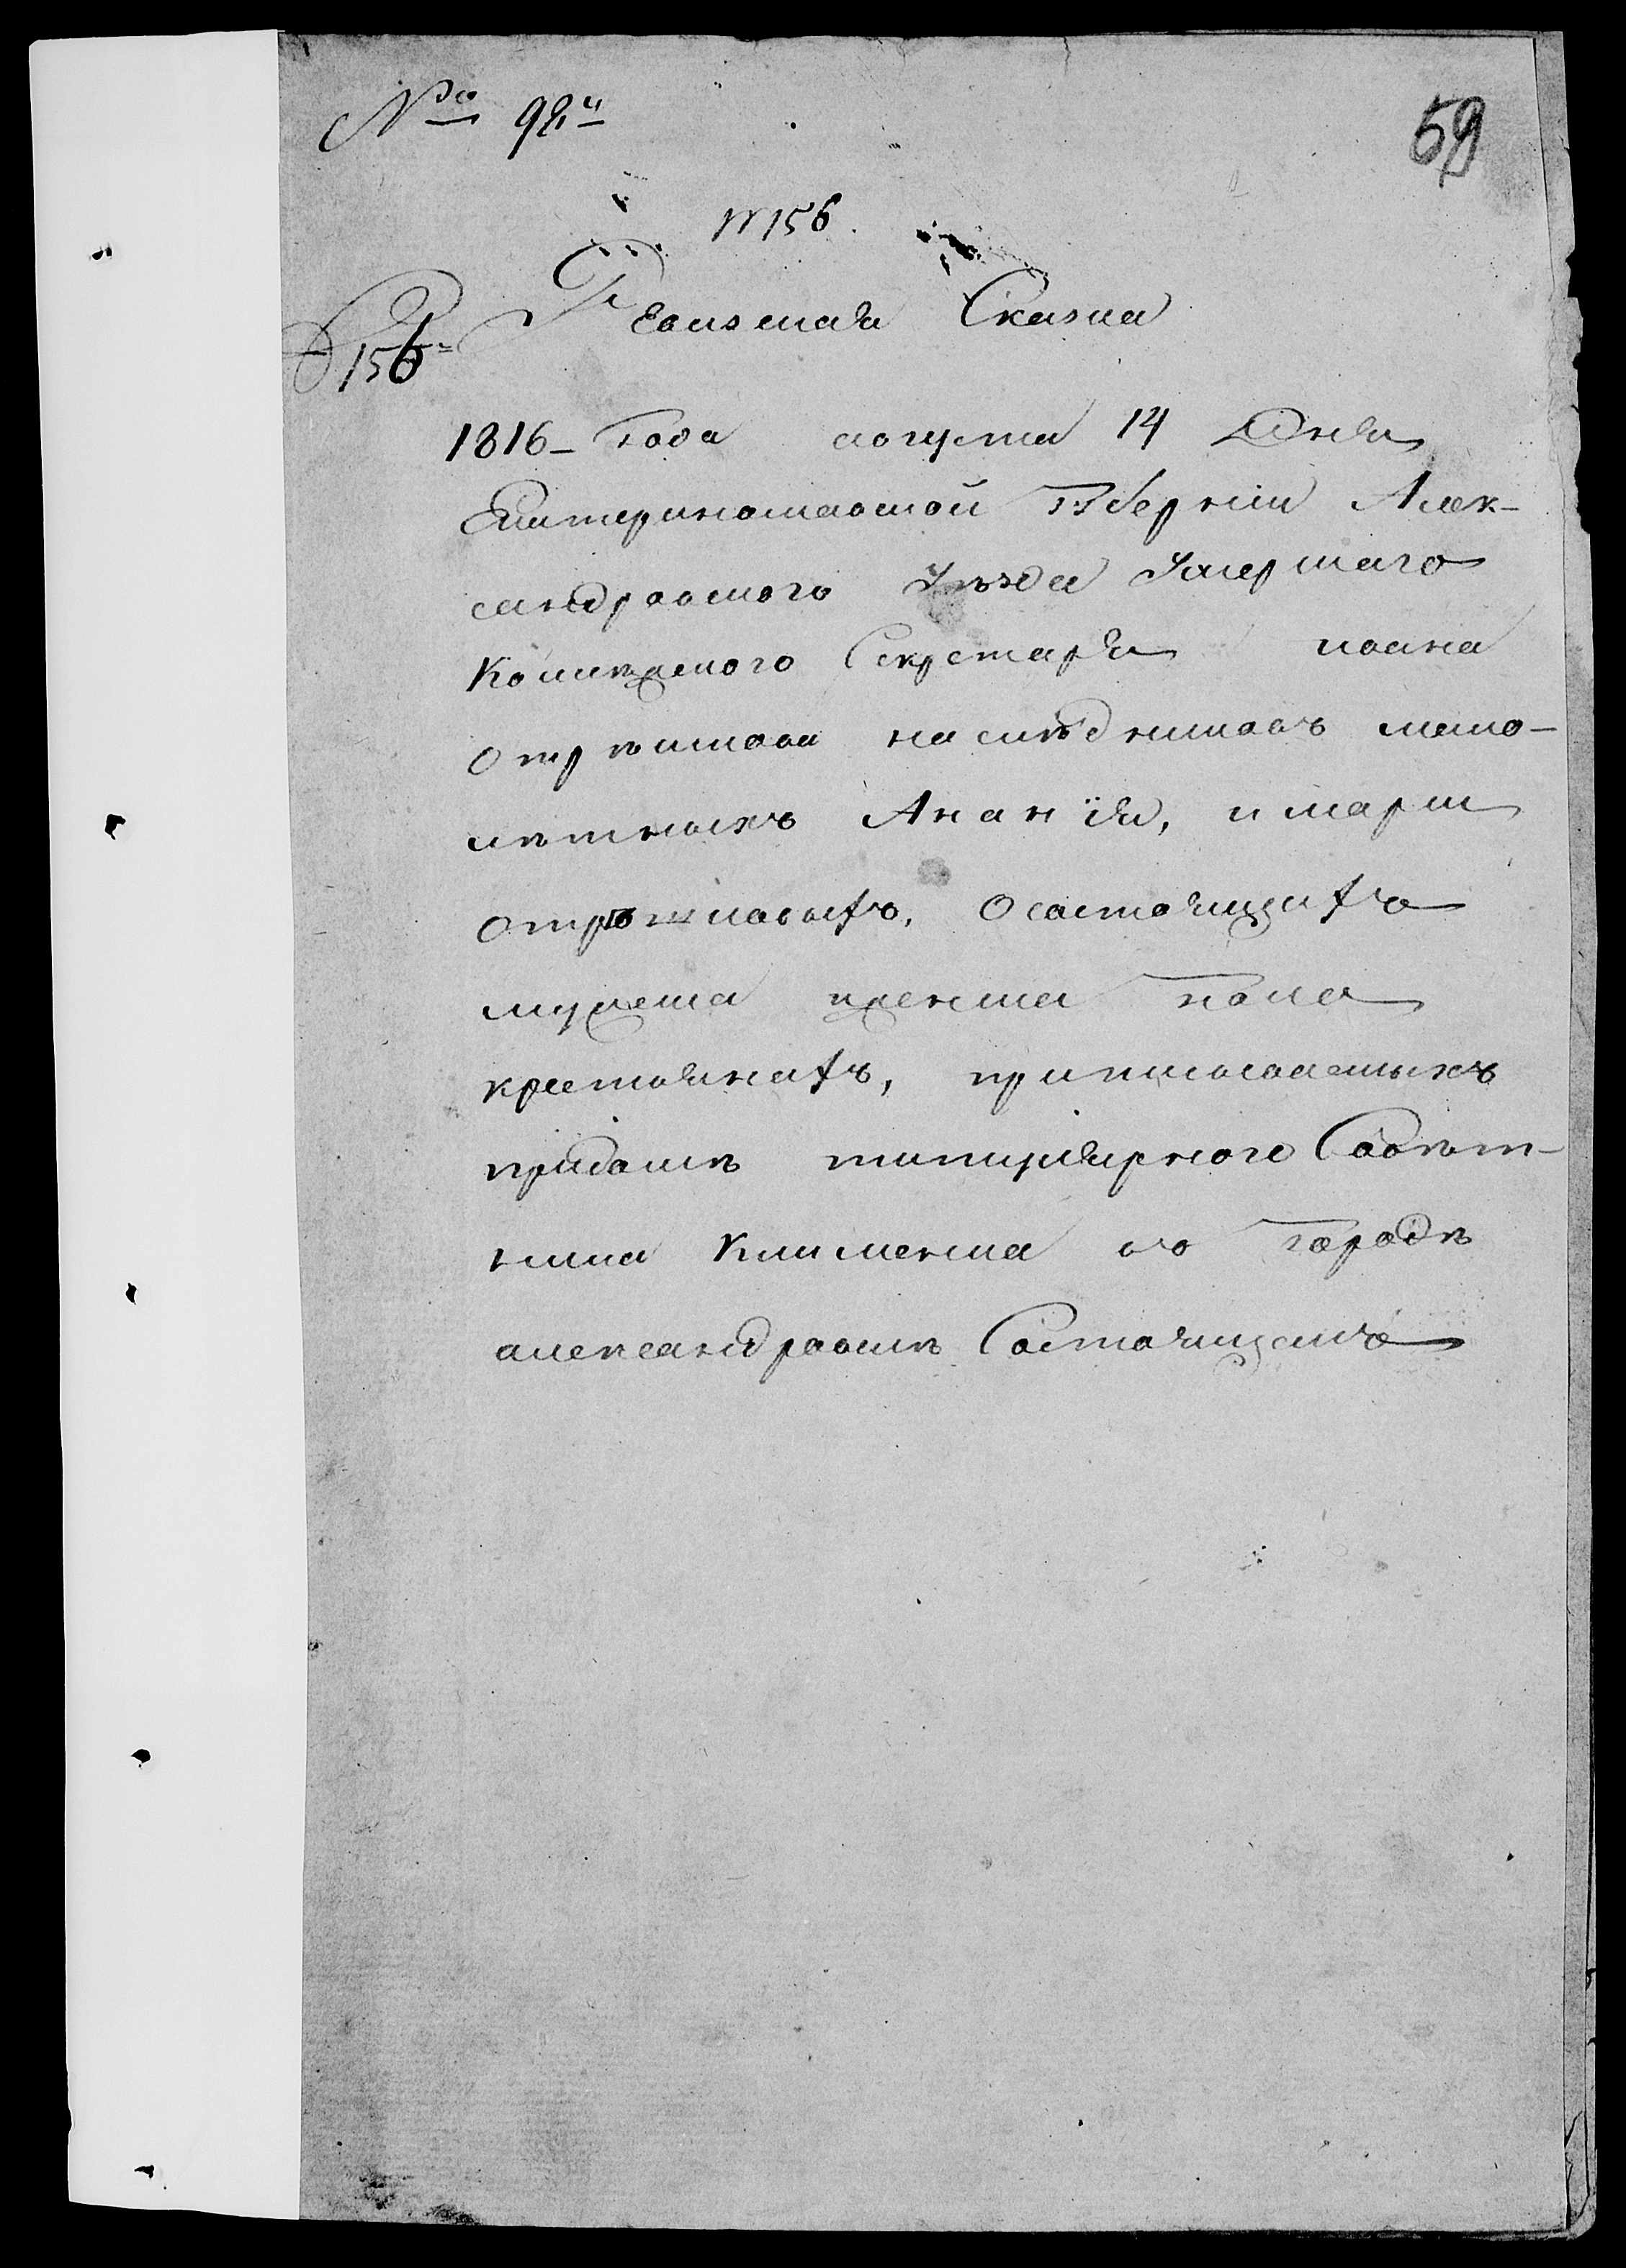 № 92й
59
№ 156.
156
Ревизская Сказка
1816 – года августа 14 Дня
Екатеринославской Губернии Алек–
сандровского Уезда Умершаго
Колежского Секретаря ивана
отрѣшкова наслѣдниковъ мало–
лѣтныхъ Ананїя, и марии
отрѣшковыхъ, О состоящихъ
мужеска иженска пола
крестьянахъ, приписываемыхъ
придомѣ титулярного Совѣт–
ника Климента въ городѣ
александровскѣ Состоящемъ